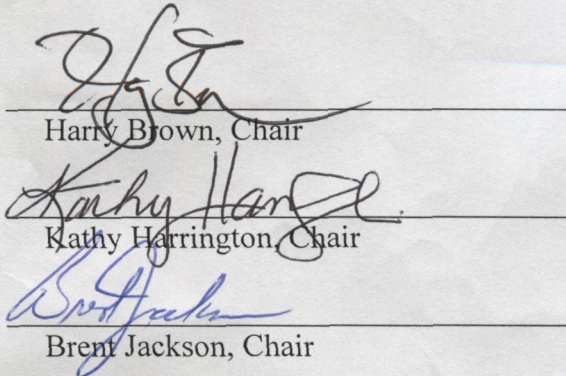 Harry Brown, Chair
Kathy Harrington, Chair
Brent Jackson
Brent Jackson, Chair